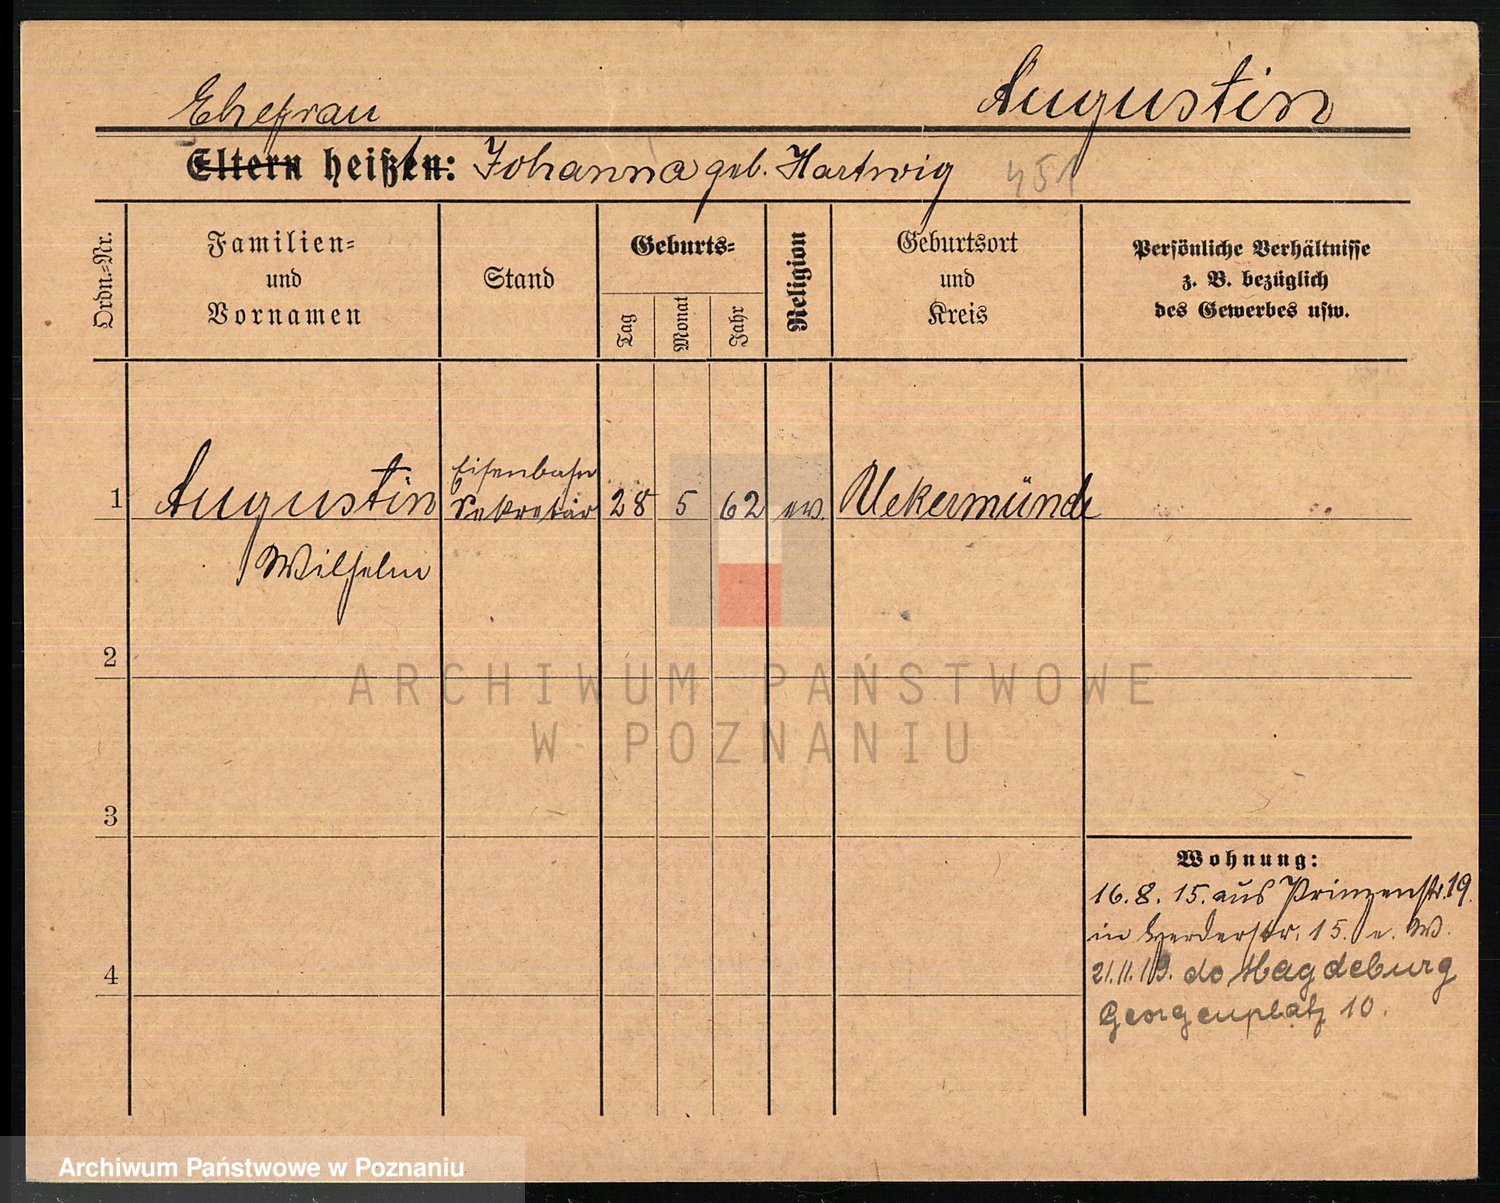 Augustin
Ehefrau
Eltern heißen: Johanna geb. Hartwig 451
Ordn.-Nr.
Familien-
und
Vornamen
Stand
Geburts-
Tag
Monat
Jahr
Religion
Geburtsort
und
Kreis
Persönliche Verhältnisse
z. B. bezüglich
des Gewerbes usw.
Eisenbahn
1 Augustin Sekretär 28 5 62 ev. Uekermünde
Wilhelm
2
ARCHIWUM PAŃSTWOWE
W POZNANIU
3
Wohnung:
16.8.15. aus Prinzenstr. 19.
in Herderstr. 15. e. W.
4
21.11.19. do Magdeburg
Georgenplatz 10.
Archiwum Państwowe w Poznaniu